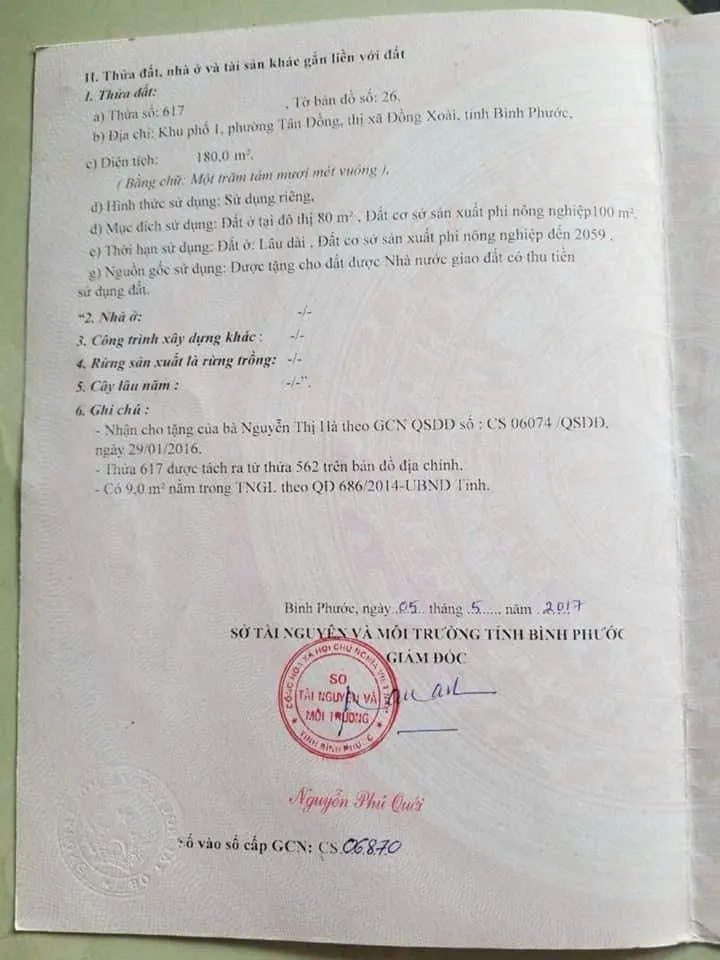 II. Thửa đất, nhà ở và tài sản khác gắn liền với đất
1. Thửa đất:
a) Thửa số: 617 , Tờ bản đồ số: 26,
b) Địa chỉ: Khu phố 1, phường Tân Đồng, thị xã Đồng Xoài, tỉnh Bình Phước,
c) Diện tích: 180,0 m²,
( Bằng chữ: Một trăm tám mươi mét vuông ),
d) Hình thức sử dụng: Sử dụng riêng,
đ) Mục đích sử dụng: Đất ở tại đô thị 80 m² , Đất cơ sở sản xuất phi nông nghiệp100 m²,
e) Thời hạn sử dụng: Đất ở: Lâu dài , Đất cơ sở sản xuất phi nông nghiệp đến 2059 ,
g) Nguồn gốc sử dụng: Được tặng cho đất được Nhà nước giao đất có thu tiền
sử dụng đất.
"2. Nhà ở: -/-
3. Công trình xây dựng khác : -/-
4. Rừng sản xuất là rừng trồng: -/-
5. Cây lâu năm : -/-".
6. Ghi chú :
- Nhận cho tặng của bà Nguyễn Thị Hà theo GCN QSDĐ số : CS 06074 /QSDĐ,
ngày 29/01/2016.
- Thửa 617 được tách ra từ thửa 562 trên bản đồ địa chính.
- Có 9,0 m² nằm trong TNGL theo QĐ 686/2014-UBND Tỉnh.
Bình Phước, ngày 05 tháng .5..... năm .2017
SỞ TÀI NGUYÊN VÀ MÔI TRƯỜNG TỈNH BÌNH PHƯỚC
GIÁM ĐỐC
CỘNG HÒA XÃ HỘI CHỦ NGHĨA VIỆT NAM
SỞ
TÀI NGUYÊN VÀ
MÔI TRƯỜNG
TỈNH BÌNH PHƯỚC
Nguyễn Phú Quới
Số vào sổ cấp GCN: CS.06870